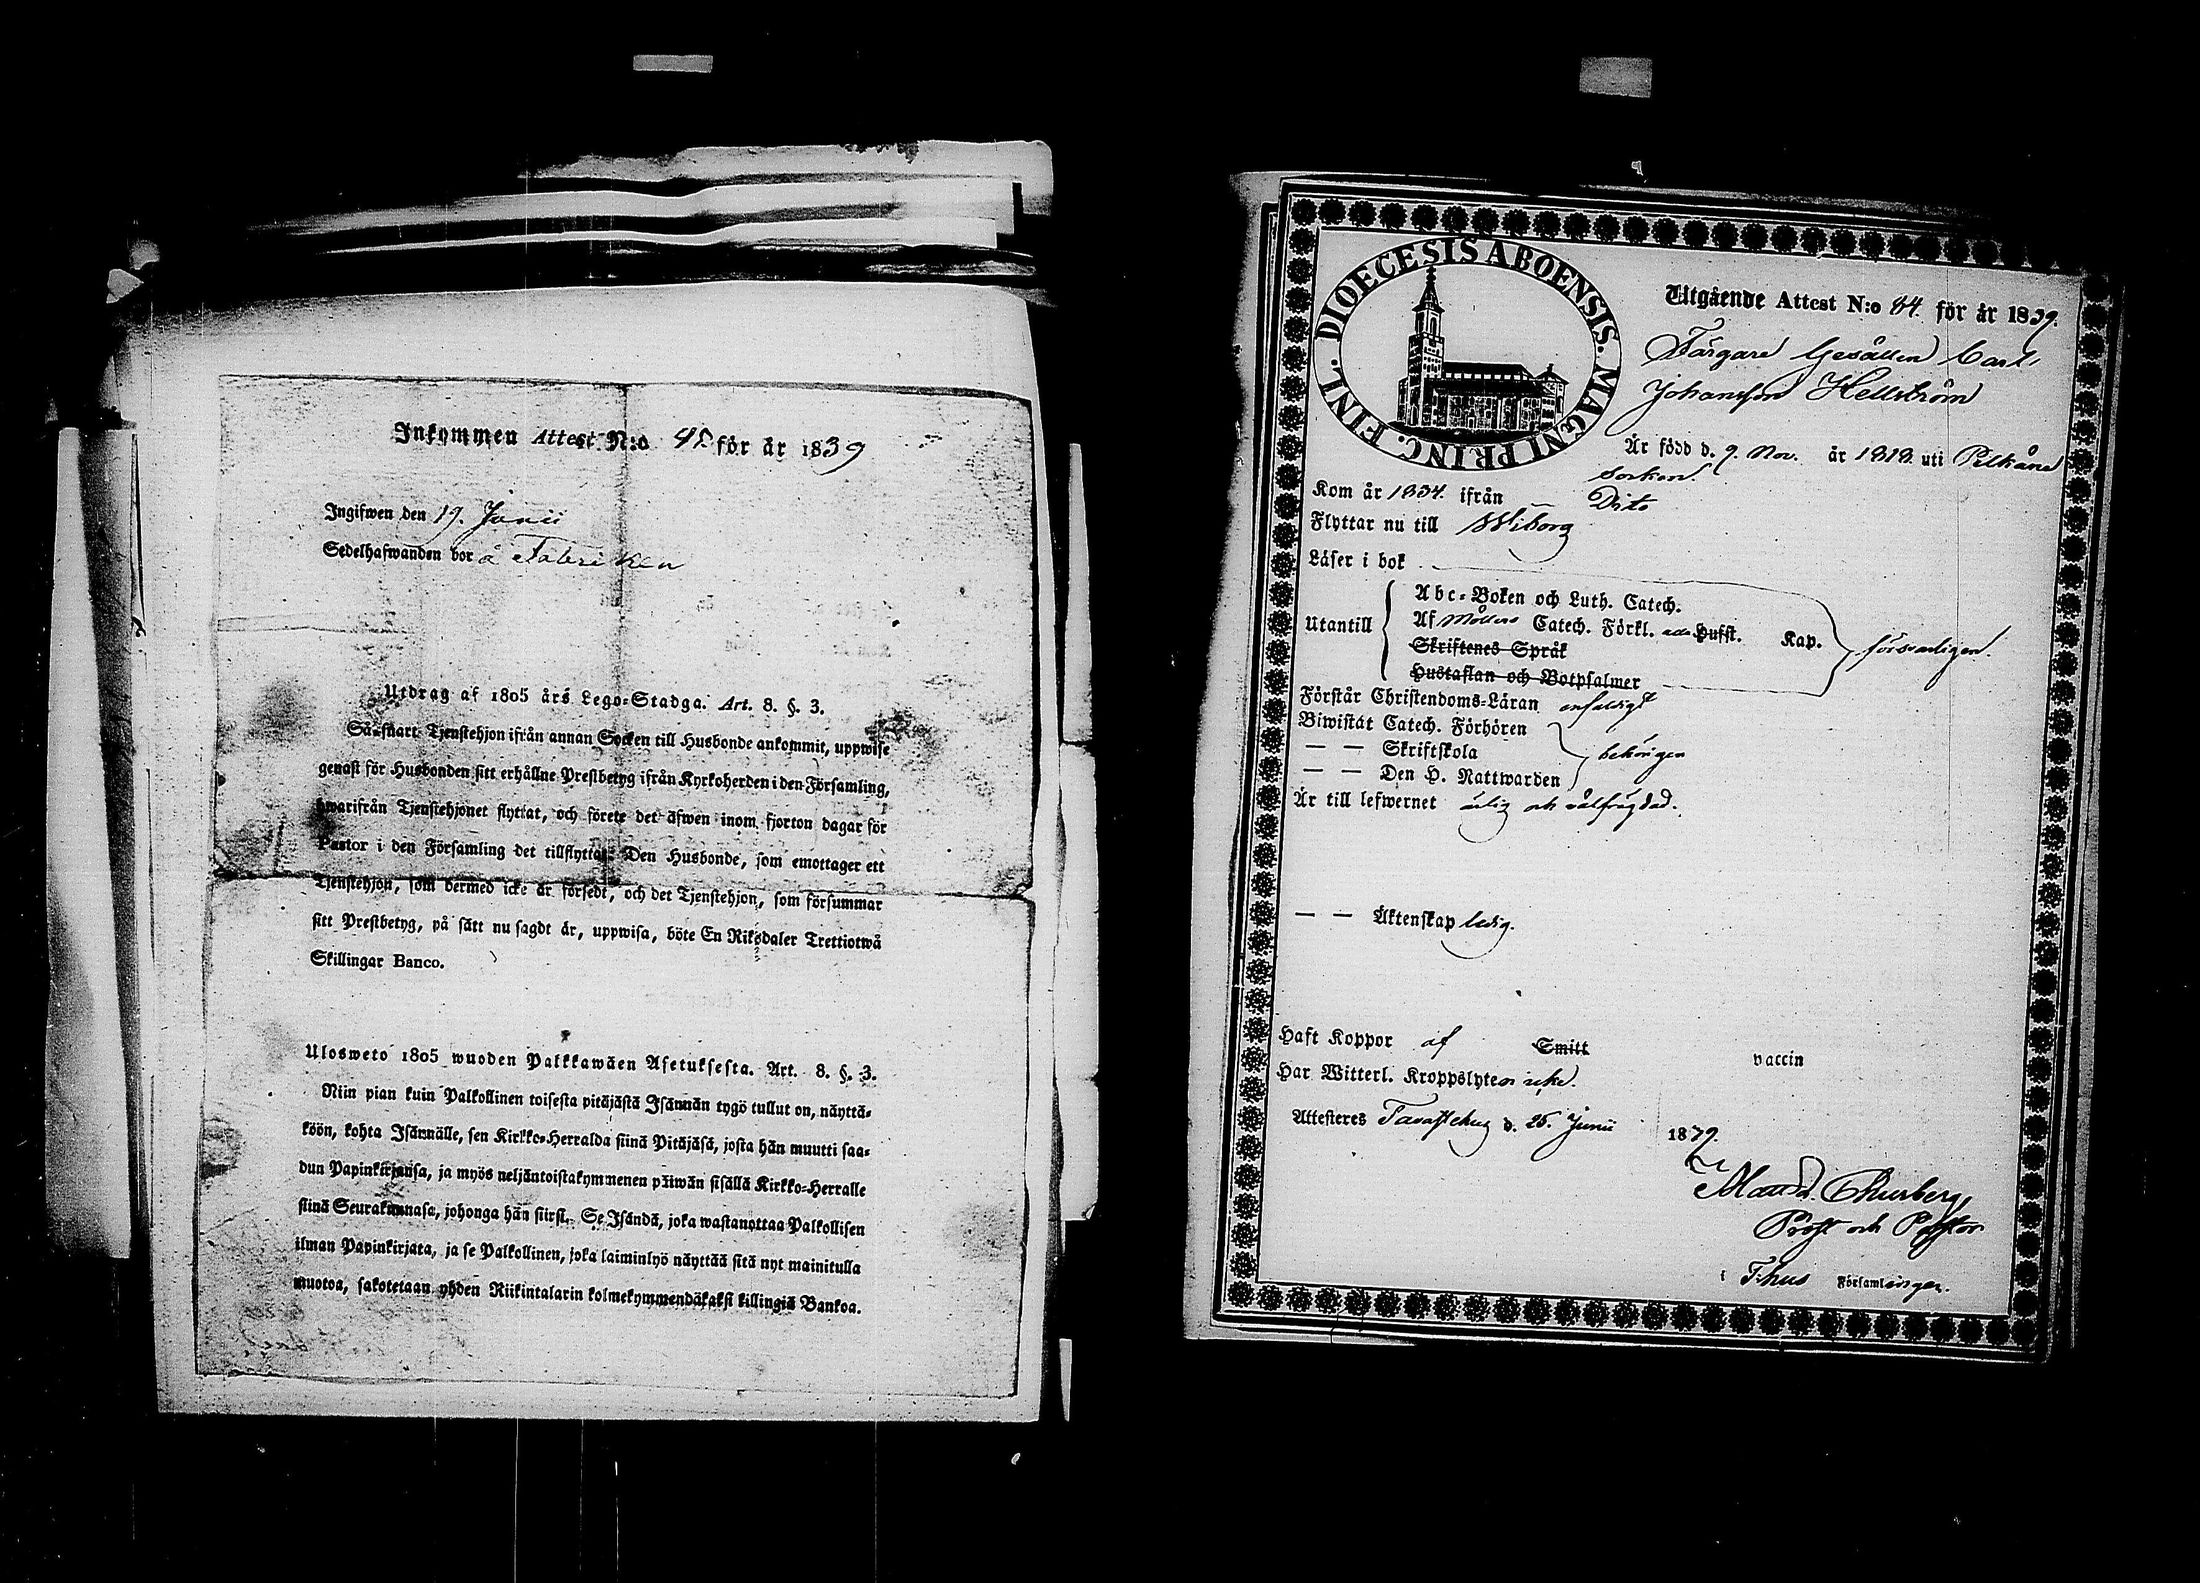 Inkommen Attest N:o 41 för år 1839
Ingifwen den 19. Junii
Sedelhafwanden bor å Fabriken
Utdrag af 1805 års Lego-Stadga. Art. 8. §. 3.
Så snart Tjenstehjon ifrån annan Socken till Husbonde ankommit, uppwise
genast för Husbonden sitt erhållne Prestbetyg ifrån Kyrkoherden i den Församling,
hwarifrån Tjenstehjonet flyttat, och förete det äfwen inom fjorton dagar för
Pastor i den Församling det tillflyttat. Den Husbonde, som emottager ett
Tjenstehjon, som dermed icke är försedt, och det Tjenstehjon, som försummar
sitt Prestbetyg, på sätt nu sagdt är, uppwisa, böte En Riksdaler Trettiotwå
Skillingar Banco.
Ulosweto 1805 wuoden Palkkawäen Asetuksesta. Art. 8. §. 3.
Niin pian kuin Palkollinen toisesta pitäjästä Isännän tygö tullut on, näyttä-
köön, kohta Isännälle, sen Kirkko-Herralda siinä Pitäjäsä, josta hän muutti saa-
dun Papinkirjansa, ja myös neljäntoistakymmenen päiwän sisällä Kirkko-Herralle
siinä Seurakunnasa, johonga hän siirsi. Se Isändä, joka wastanottaa Palkollisen
ilman Papinkirjata, ja se Palkollinen, joka laiminlyö näyttää sitä nyt mainitulla
muotoa, sakotetaan yhden Riikintalarin kolmekymmendäkaksi killingiä Bankoa.
DIOECESIS ABOENSIS. MAGNI PRINC. FINL.
Utgående Attest N:o 84 för år 1839.
Färgare Gesällen Carl
Johansson Hellström
Är född d. 9. Nov. år 1818. uti Pelkäne
Socken.
Kom år 1834. ifrån Dito
Flyttar nu till Wiborg
Läser i bok
Utantill
Abc-Boken och Luth. Catech.
Af Möllers Catech. Förkl. Hufst. Kap.
försvarligen.
Skriftenes Språk
Hustaflan och Botpsalmer
Förstår Christendoms-Läran enfaldigt
Biwistat Catech. Förhören
— — Skriftskola behörigen
— — Den H. Nattwarden
Är till lefwernet ärlig och välfrägdad.
— — Äktenskap ledig.
Haft Koppor af Smitt vaccin
Har Witterl. Kroppslyten icke.
Attesteres Tavastehus d. 25. Junii 1839.
Churberg,
Prost och Pastor
i T:hus Församlingen.